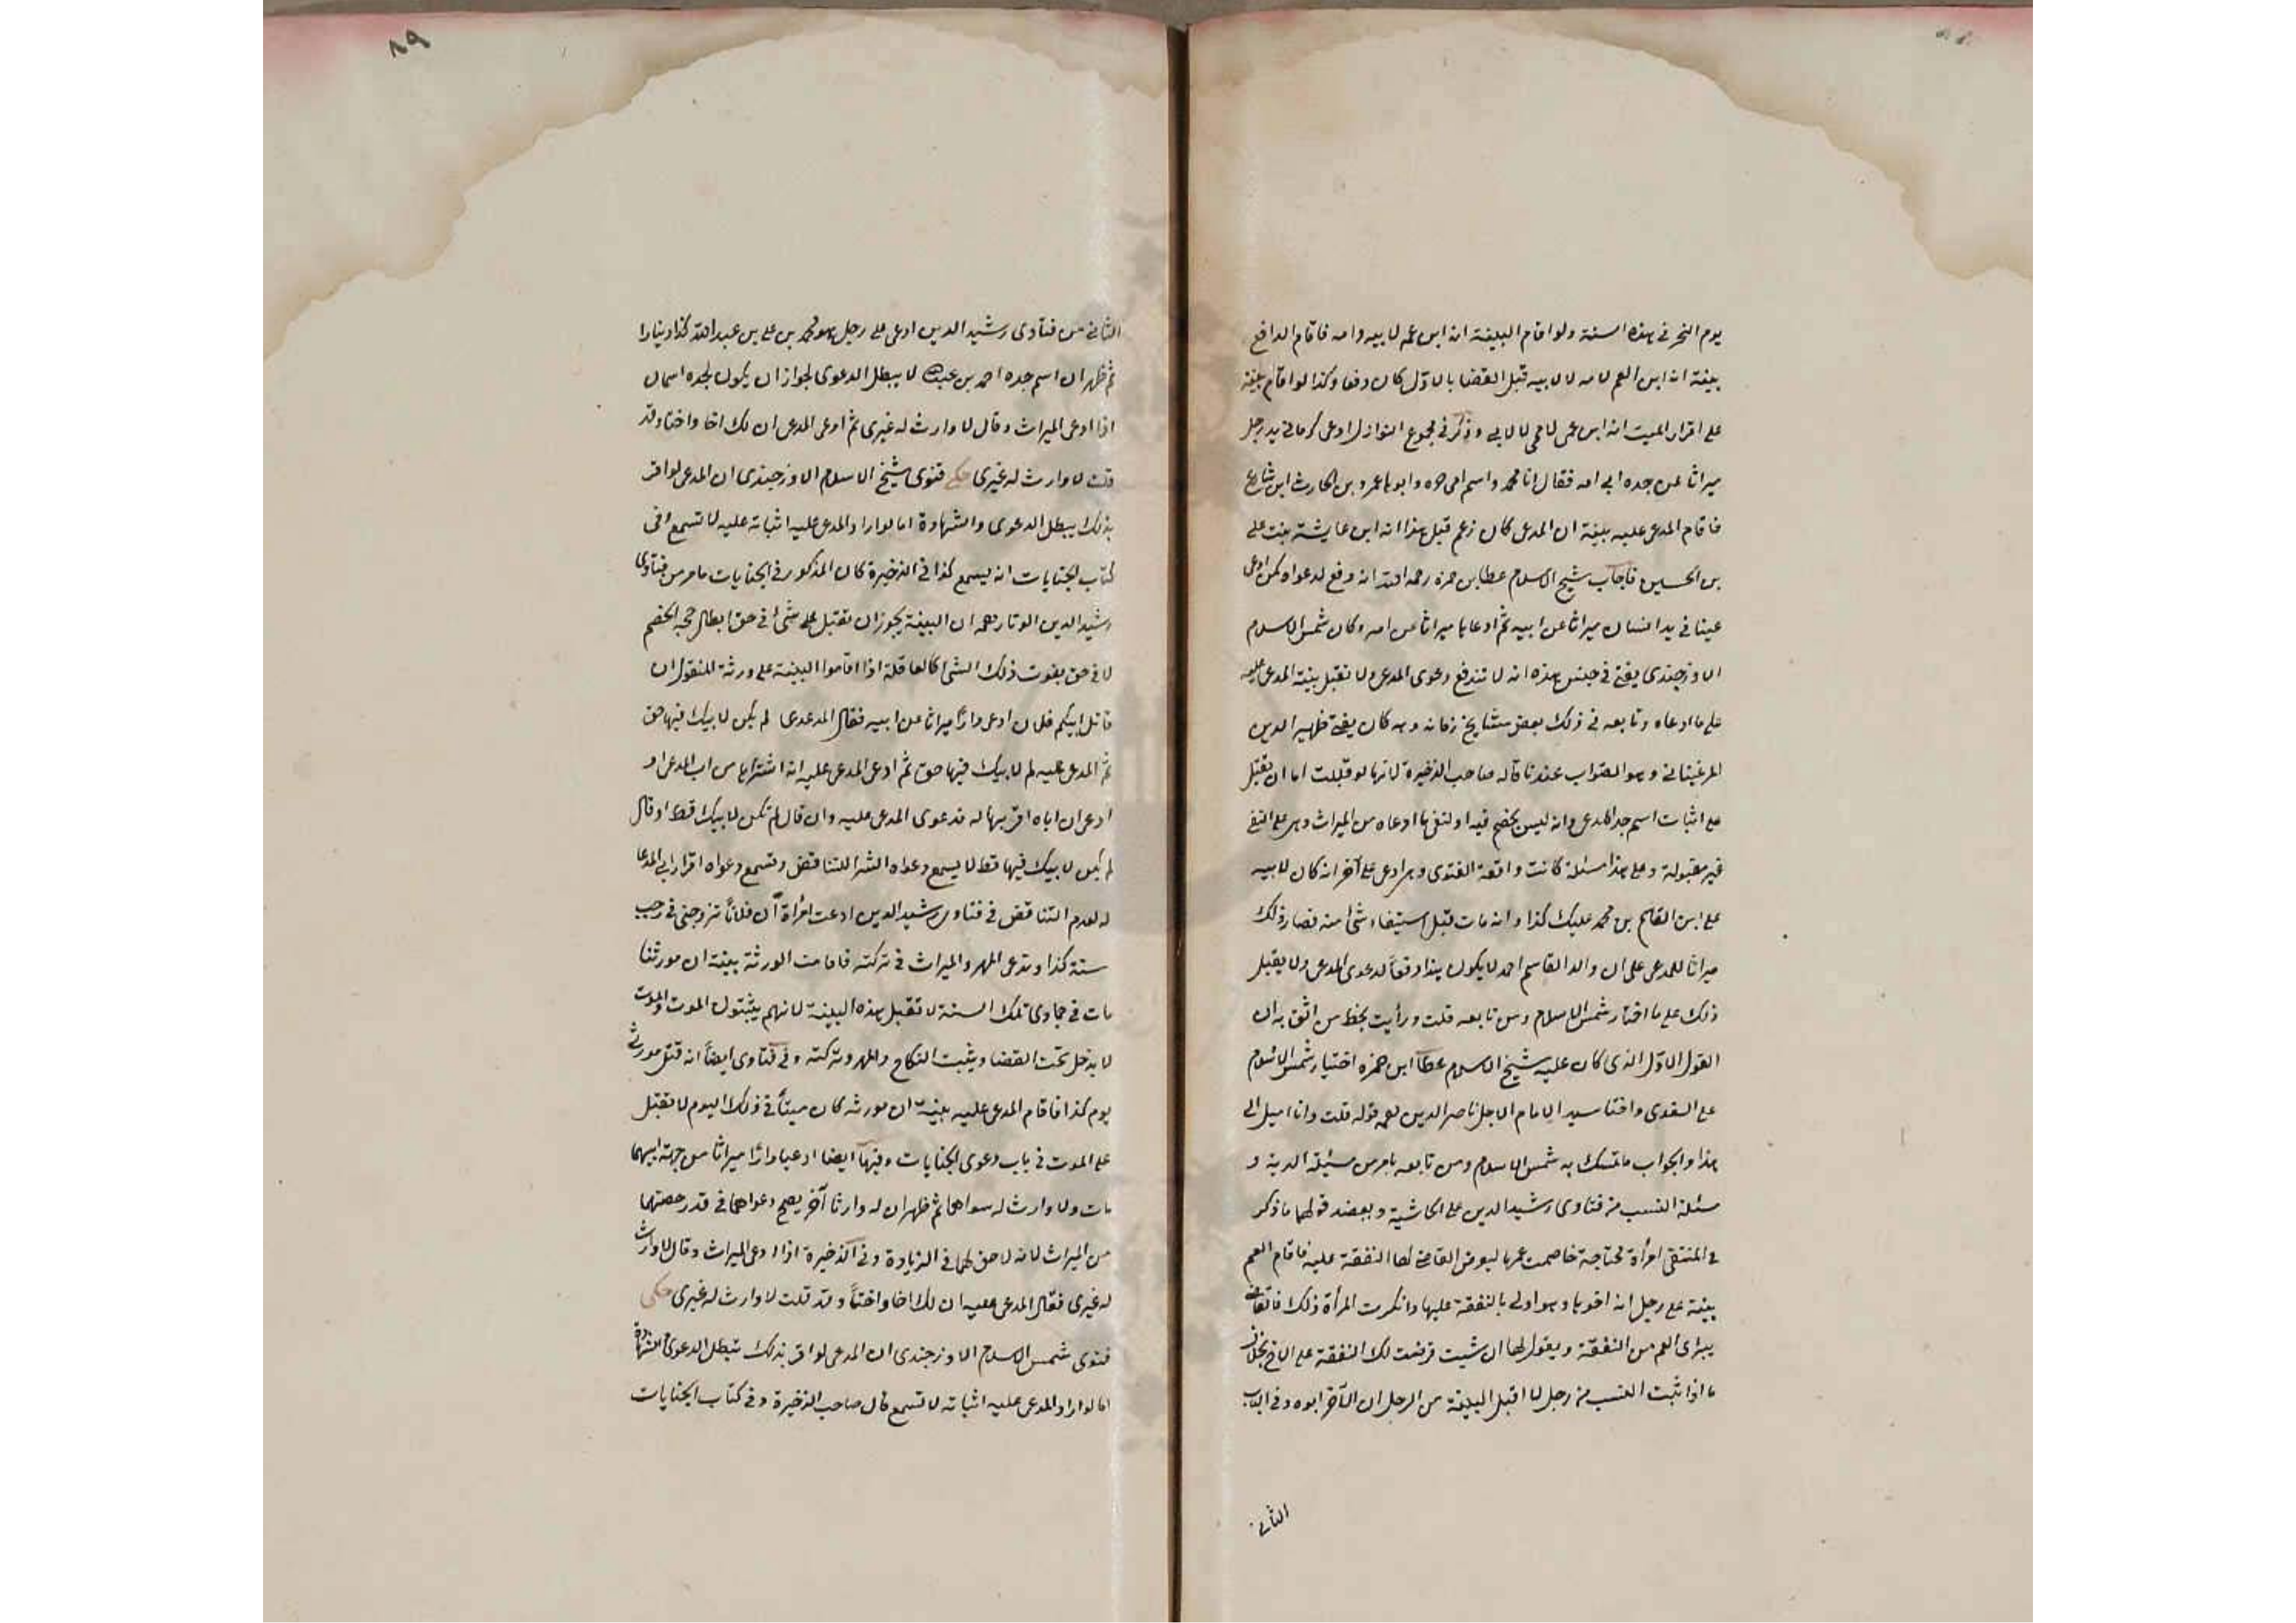 يوم النحر في هذه السنة ولو اقام البينة انه ابن عمه لابيه وامه فاقام الدافع
بينة انه ابن العم لامه لا لابيه قبل القضا بالاول كان دفعا وكذا لو اقام بينة
على اقرار الميت انه ابن عمى لامى لا لابى وذكر في مجموع النوازل ادعى كرما في يد رجل
ميراثا عن جده ابى امه فقال انا محمد واسم امى حره وابوها عمرو بن الحارث ابن
فاقام المدعى عليه بينة ان المدعى كان زعم قبل هذا انه ابن عايشة بنت على
بن الحسين فاجاب شيخ الاسلام عطا بن حمزه رحمه الله انه دفع لدعواه كمن ادعى
عينا في يد انسان ميراثا عن ابيه ثم ادعاها ميراثا عن امه وكان شمس الاسلام
الاوزجندى يفتى في جنس هذه انه لا تندفع دعوى المدعى ولا تقبل بينة المدعى عليه
على ما ادعاه وتابعه في ذلك بعض مشايخ زمانه وبه كان يفتى ظهير الدين
المرغينانى وهو الصواب عندنا قاله صاحب الذخيرة لانها لو قبلت اما ان تقبل
على اثبات اسم جد المدعى وانه ليس بخصم فيه او لنفى ما ادعاه من الميراث وهى على النفى
غير مقبولة وعلى هذا مسئلة كانت واقعة الفتوى وهى ادعى على آخر انه كان لابيه
على ابن القاسم بن محمد عليك كذا وانه مات قبل استيفاء شئ منه فصار ذلك
ميراثا للمدعى على ان والد القاسم احمد لا يكون هذا دفعا لدعوى المدعى ولا يقبل
ذلك على ما اختار شمس الاسلام ومن تابعه قلت ورأيت بخط من اثق به ان
القول الاول الذى كان عليه شيخ الاسلام عطا ابن حمزه اختيار شمس الاسلام
على السغدى واختيا سيد الامام الاجل ناصر الدين قوله قلت وانا اميل الى
هذا والجواب ما تمسك به شمس الاسلام ومن تابعه بامر من مسئلة الدية و
مسئلة النسب من فتاوى رشيد الدين على الحاشية ويعضد قولهما ما ذكر
في المنتقى امرأة محتاجة خاصمت عمها ليفرض القاضى لها النفقة عليه فاقام العم
بينة على رجل انه اخوها وهو اولى بالنفقة عليها وانكرت المرأة ذلك فالقاضى
يبرئ العم من النفقة ويقول لها ان شيت فرضت لك النفقة على الاخ بخلاف
ما اذا ثبت النسب من رجل لا اقبل البينة من الرجل ان الآخر ابوه وفى الباب
الثانى
٨٩
الثانى من فتاوى رشيد الدين ادعى على رجل هو محمد بن على بن عبد الله كذا دينارا
ثم ظهر ان اسم جده احمد بن عبد الله لا يبطل الدعوى لجواز ان يكون لجده اسمان
اذا ادعى الميراث وقال لا وارث له غيرى ثم ادعى المدعى ان لك اخا واختا وقد
قلت لا وارث له غيرى حكى فتوى شيخ الاسلام الاوزجندى ان المدعى لو اقر
بذلك يبطل الدعوى والشهادة اما لو اراد المدعى عليه اثباته عليه لا تسمع وفى
كتاب الجنايات انه يسمع كذا في الذخيرة كان المذكور في الجنايات ما مر من فتاوى
رشيد الدين الوتار رحمه ان البينة يجوز ان تقبل على شئ في حق ابطال حجة الخصم
لا في حق ذلك الشئ كالعاقلة اذا اقاموا البينة على ورثة المقتول ان
قاتل ابيكم فلان ادعى دارا ميراثا عن ابيه فقال المدعى لم يكن لابيك فيها حق
ثم المدعى عليه لم لابيك فيها حق ثم ادعى المدعى عليه انه اشتراها من اب المدعى او
ادعى ان اباه اقر بها له فدعوى المدعى عليه وان قال لم تكن لابيك قط او قال
لم يكن لابيك فيها قط لا يسمع دعواه الشرا للتناقض وتسمع دعواه اقرار ابى المدعا
له لعدم التناقض في فتاوى رشيد الدين ادعت امرأة ان فلانا تزوجنى في رجب
سنة كذا وتدعى المهر والميراث في تركته فاقامت الورثة بينة ان مورثنا
مات في جمادى تلك السنة لا تقبل هذه البينة لانهم يثبتون الموت والموت
لا يدخل تحت القضا ويثبت النكاح والمهر وتركته وفى فتاوى ايضا انه قتل مورثى
يوم كذا فاقام المدعى عليه بينة ان مورثه كان ميتا في ذلك اليوم لا تقبل
على الموت في باب دعوى الجنايات وفيها ايضا ادعيا دارا ميراثا من جهة ابيهما
مات ولا وارث له سواهما ثم ظهر ان له وارثا آخر يصح دعواهما في قدر حصتهما
من الميراث لانه لا حق لهما في الزيادة وفى الذخيرة اذا ادعى الميراث وقال لا وارث
له غيرى فقال المدعى عليه ان لك اخا واختا وقد قلت لا وارث له غيرى حكى
فتوى شمس الاسلام الاوزجندى ان المدعى لو اقر بذلك تبطل الدعوى والشهادة
اما لو اراد المدعى عليه اثباته لا تسمع قال صاحب الذخيرة وفى كتاب الجنايات